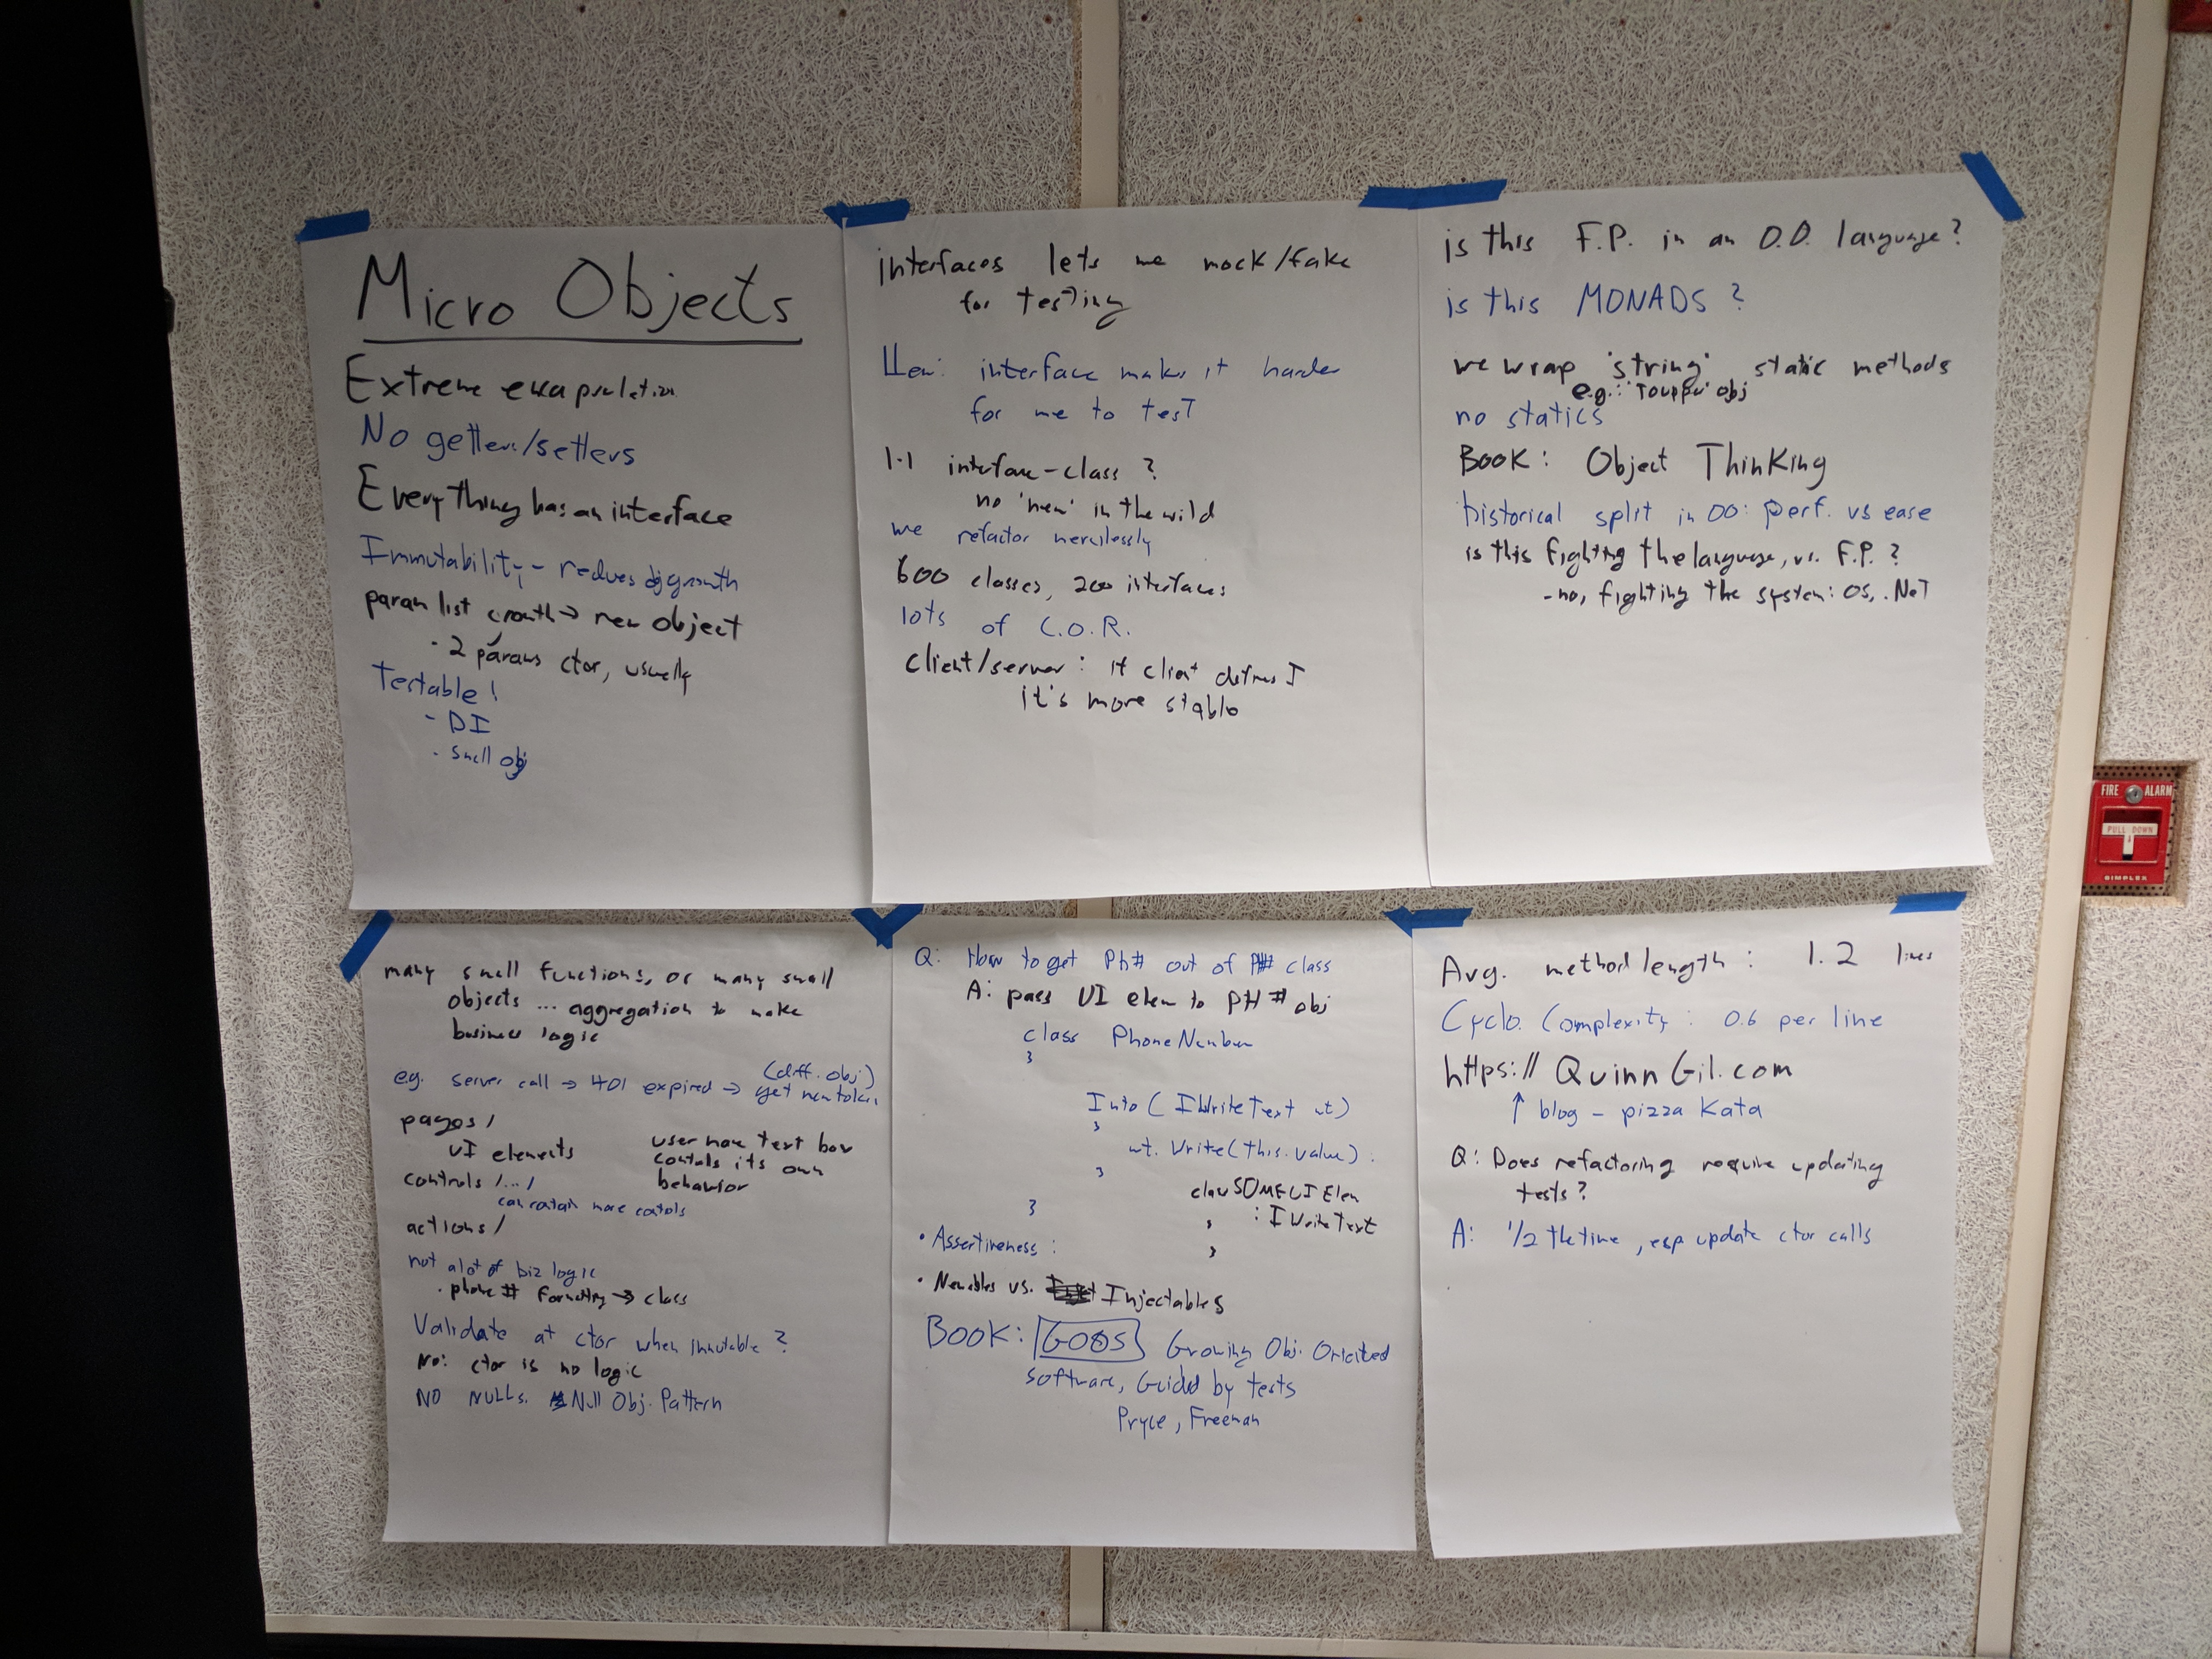 Micro Objects
Extreme encapsulation
No getters/setters
Everything has an interface
Immutability - reduces obj growth
param list growth → new object
- 2 params ctor, usually
Testable!
- DI
- small obj
interfaces lets me mock/fake
for testing
Llew: interface makes it harder
for me to test
1-1 interface-class?
no 'new' in the wild
we refactor mercilessly
600 classes, 200 interfaces
lots of C.O.R.
client/server: if client defines I
it's more stable
is this F.P. in an O.O. language?
is this MONADS?
we wrap 'string' static methods
e.g.: 'ToUpper' obj
no statics
BOOK: Object Thinking
historical split in OO: perf. vs ease
is this fighting the language, vs. F.P.?
- no, fighting the system: OS, .NeT
many small functions, or many small
objects ... aggregation to make
business logic
(diff. obj)
e.g. server call → 401 expired → get new token
pages/
UI elements
controls /.../
can contain more controls
actions/
user name text box
controls its own
behavior
not a lot of biz logic
· phone # formatting → class
Validate at ctor when immutable?
No: ctor is no logic
NO NULLS. Null Obj. Pattern
Q: How to get Ph# out of Ph# class
A: pass UI elem to PH# obj
class PhoneNumber
{
Into( IWriteText wt)
{
wt. Write(this.value);
}
}
class SOMEUIElem
: IWriteText
{
}
· Assertiveness:
· Newables vs. Injectables
BOOK: GOOS Growing Obj. Oriented
Software, Guided by tests
Pryce, Freeman
Avg. method length: 1.2 lines
Cyclo. Complexity: 0.6 per line
https:// QuinnGil.com
↑ blog - pizza Kata
Q: Does refactoring require updating
tests?
A: 1/2 the time, esp update ctor calls
FIRE ALARM
PULL DOWN
SIMPLEX